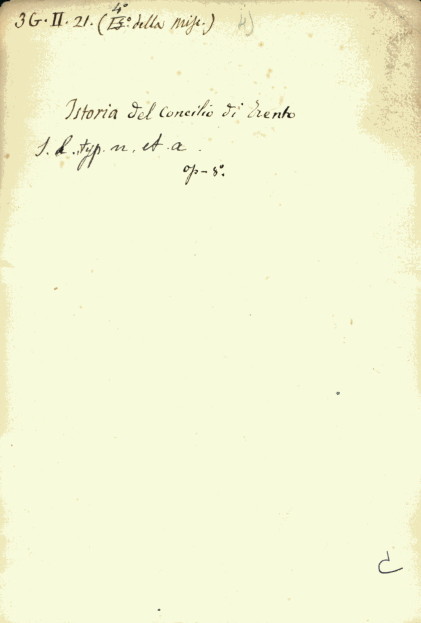 3G. II. 21. (4º della Misc.) 4)
Istoria del Concilio di Trento
S. l. typ. n. et a.
op-8º.